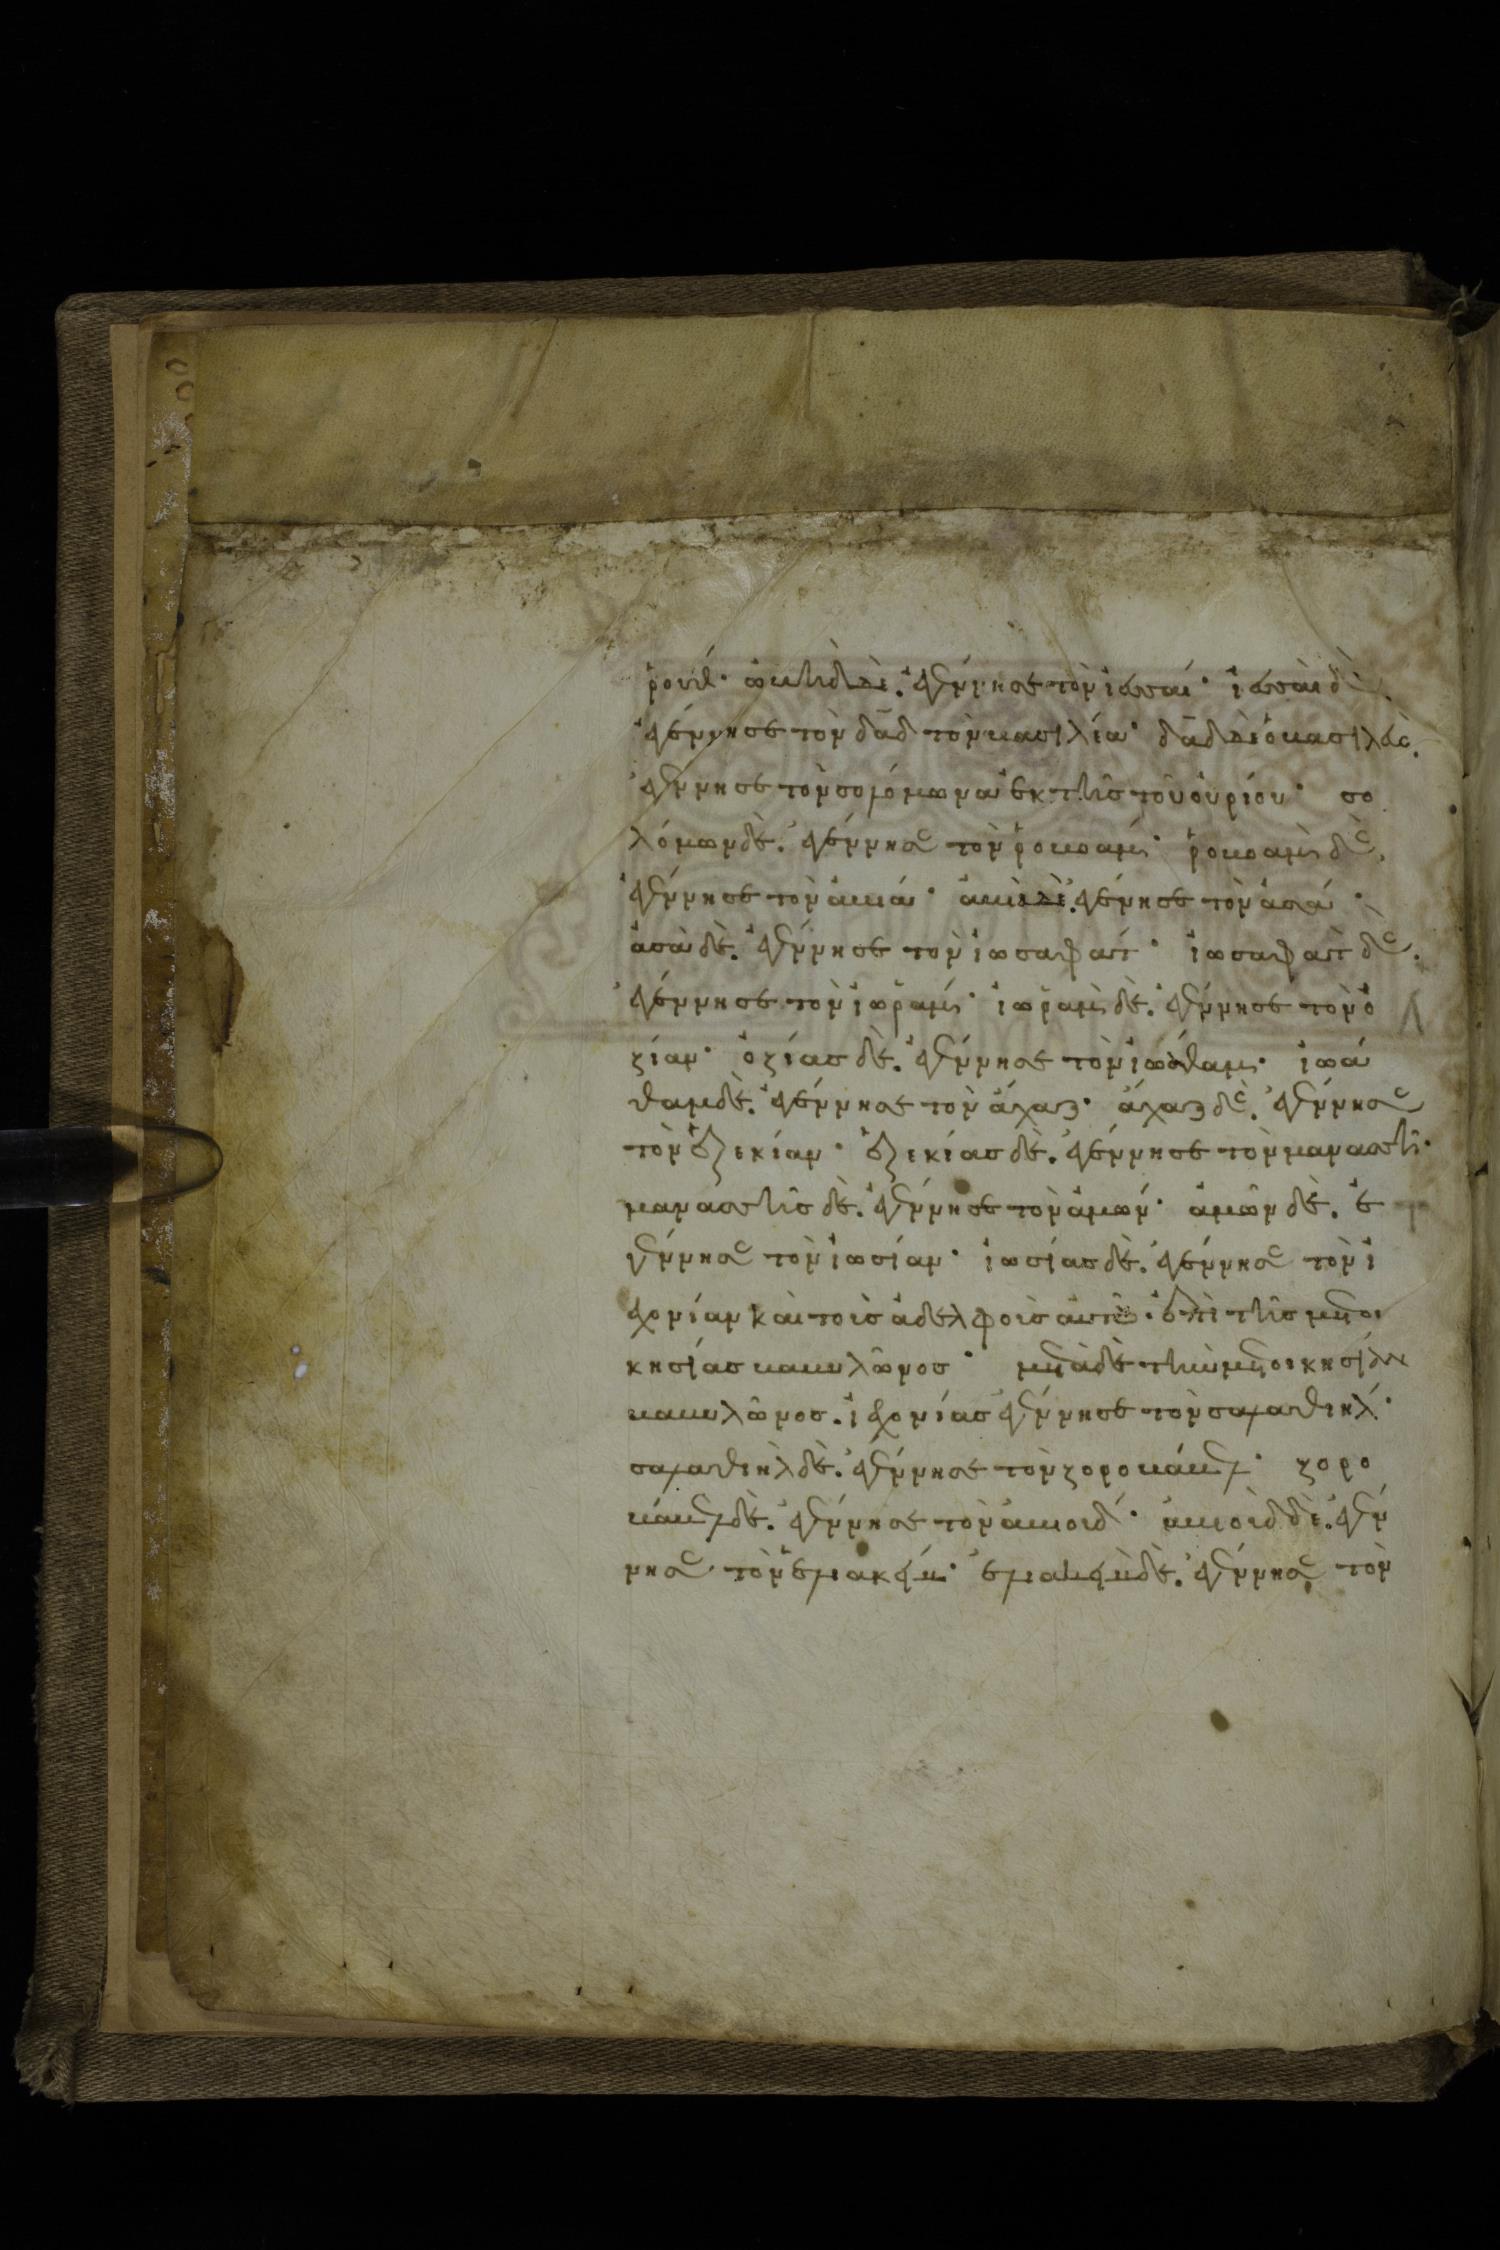 ῥουθ· ὠβὴδ δὲ. ἐγέννησε τὸν ἰεσσαί· ἰεσσαὶ δὲ
ἐγέννησε τὸν δᾱδ τὸν βασιλέα· δᾱδ δὲ ὁ βασιλεὺς.
ἐγέννησε τὸν σολόμωνα ἐκ τῆς τοῦ οὐρίου· σο
λόμων δὲ. ἐγέννησε τὸν ῥοβοάμ· ῥοβοὰμ δὲ.
ἐγέννησε τὸν ἀβιά· ἀβιὰ δὲ. ἐγέννησε τὸν ἀσά·
ἀσὰ δὲ. ἐγέννησε τὸν ἰωσαφάτ· ἰωσαφὰτ δὲ.
ἐγέννησε τὸν ἰωράμ· ἰωρὰμ δὲ. ἐγέννησε τὸν ὀ
ζίαν· ὀζίας δὲ. ἐγέννησε τὸν ἰωάθαμ· ἰωά
θαμ δὲ. ἐγέννησε τὸν ἄχαζ· ἄχαζ δὲ. ἐγέννησε
τὸν ἐζεκίαν· ἐζεκίας δὲ. ἐγέννησε τὸν μανασσῆ·
μανασσῆς δὲ. ἐγέννησε τὸν ἀμών· ἀμὼν δὲ. ἐ
γέννησε τὸν ἰωσίαν· ἰωσίας δὲ. ἐγέννησε τὸν ἰ
εχονίαν καὶ τοὶς ἀδελφοὶς αὐτοῦ. ἐπὶ τῆς μετοι
κησίας βαβυλῶνος· μετὰ δὲ τὴν μετοικησίαν
βαβυλῶνος. ἰεχονίας ἐγέννησε τὸν σαλαθιήλ·
σαλαθιὴλ δὲ. ἐγέννησε τὸν ζοροβάβελ· ζορο
βάβελ δὲ. ἐγέννησε τὸν ἀβιούδ· ἀβιοὺδ δὲ. ἐγέν
νησε τὸν ἐλιακείμ· ἐλιακεὶμ δὲ. ἐγέννησε τὸν